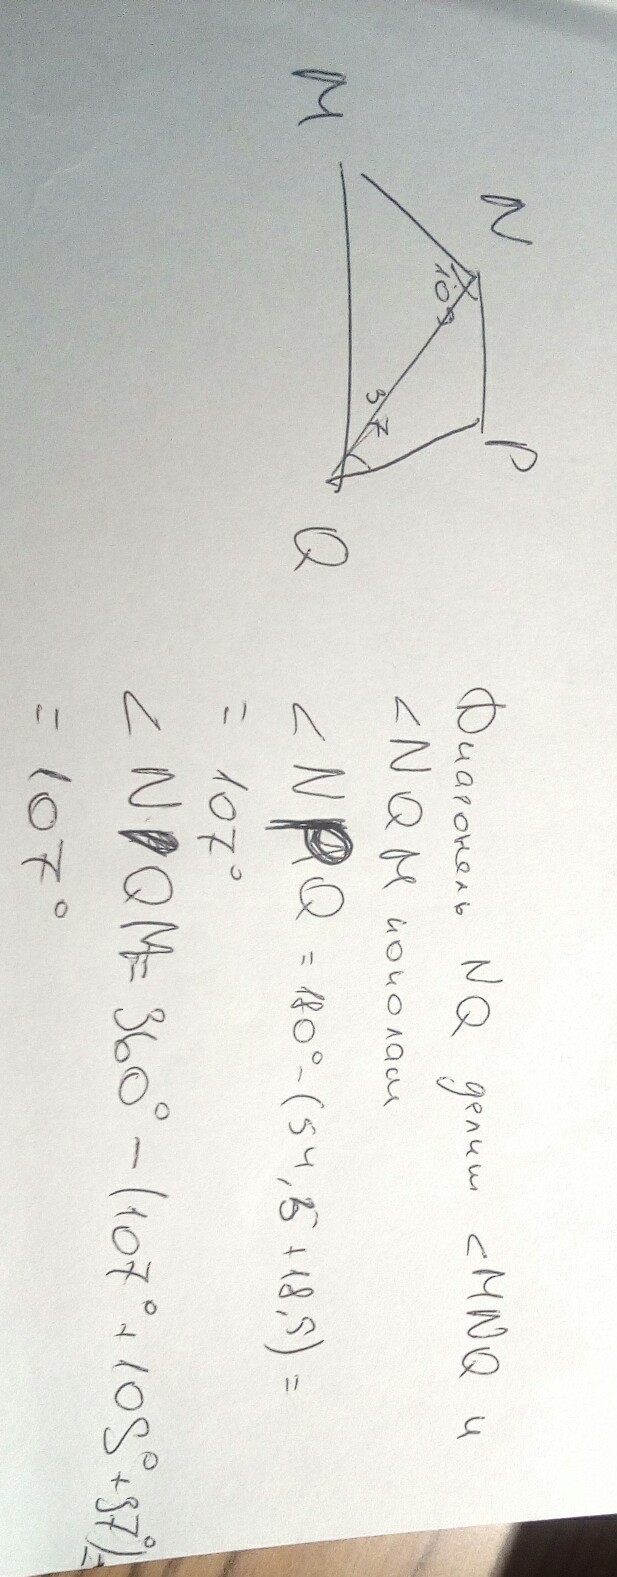 M
N
109
37
P
Q
Диагональ NQ делит <MNQ и
<NQM пополам
<NPQ = 180°-(54,5+18,5) =
= 107°
<NPQM= 360° - (107°+109°+37°)=
= 107°